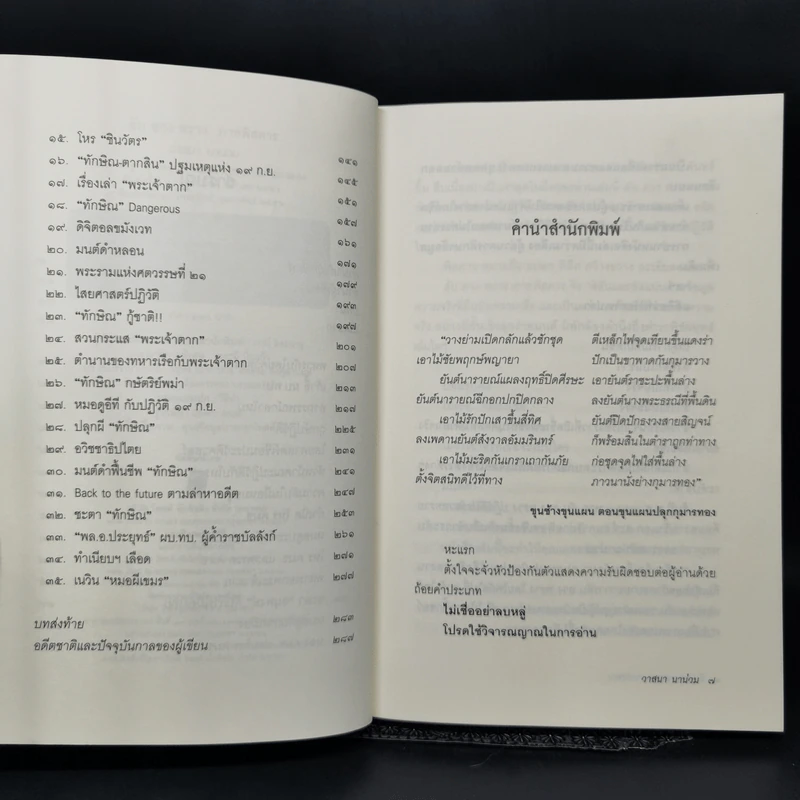 ๑๕. โหร “ชินวัตร” ๑๔๑
๑๖. “ทักษิณ-ตากสิน” ปฐมเหตุแห่ง ๑๙ ก.ย. ๑๔๕
๑๗. เรื่องเล่า “พระเจ้าตาก” ๑๕๑
๑๘. “ทักษิณ” Dangerous ๑๕๗
๑๙. ดิจิตอลขมังเวท ๑๖๑
๒๐. มนต์ดำหลอน ๑๗๑
๒๑. พระรามแห่งศตวรรษที่ ๒๑ ๑๗๙
๒๒. ไสยศาสตร์ปฏิวัติ ๑๙๓
๒๓. “ทักษิณ” กู้ชาติ!! ๑๙๗
๒๔. สวนกระแส “พระเจ้าตาก” ๒๐๑
๒๕. ตำนานของทหารเรือกับพระเจ้าตาก ๒๐๗
๒๖. “ทักษิณ” กษัตริย์พม่า ๒๑๓
๒๗. หมอดูอีที กับปฏิวัติ ๑๙ ก.ย. ๒๑๗
๒๘. ปลุกผี “ทักษิณ” ๒๒๕
๒๙. อวิชชาธิปไตย ๒๓๑
๓๐. มนต์ดำฟื้นชีพ “ทักษิณ” ๒๔๑
๓๑. Back to the future ตามล่าหาอดีต ๒๔๗
๓๒. ชะตา “ทักษิณ” ๒๕๓
๓๓. “พล.อ.ประยุทธ์” ผบ.ทบ. ผู้ค้ำราชบัลลังก์ ๒๖๑
๓๔. ทำเนียบฯ เลือด ๒๗๑
๓๕. เนวิน “หมอผีเขมร” ๒๗๗
บทส่งท้าย ๒๘๓
อดีตชาติและปัจจุบันกาลของผู้เขียน ๒๘๗
คำนำสำนักพิมพ์
“วางย่ามเปิดกลักแล้วชักชุด ตีเหล็กไฟจุดเทียนขึ้นแดงร่า
เอาไม้ชัยพฤกษ์พญายา ปักเป็นขาพาดกันกุมารวาง
ยันต์นารายณ์แผลงฤทธิ์ปิดศีรษะ เอายันต์ราชะปะพื้นล่าง
ยันต์นารายณ์ฉีกอกปกปิดกลาง ลงยันต์นางพระธรณีที่พื้นดิน
เอาไม้รักปักเสาขึ้นสี่ทิศ ยันต์ปิดปักธงวงสายสิญจน์
ลงเพดานยันต์สังวาลอัมมรินทร์ ก็พร้อมสิ้นในตำราถูกท่าทาง
เอาไม้มะริดกันเกราเถากันภัย ก่อชุดจุดไฟใส่พื้นล่าง
ตั้งจิตสนิทดีไว้ที่ทาง ภาวนานั่งย่างกุมารทอง”
ขุนช้างขุนแผน ตอนขุนแผนปลุกกุมารทอง
หะแรก
ตั้งใจจะจั่วหัวป้องกันตัวแสดงความรับผิดชอบต่อผู้อ่านด้วย
ถ้อยคำประเภท
ไม่เชื่ออย่าลบหลู่
โปรดใช้วิจารณญาณในการอ่าน
วาสนา นาน่วม ๗